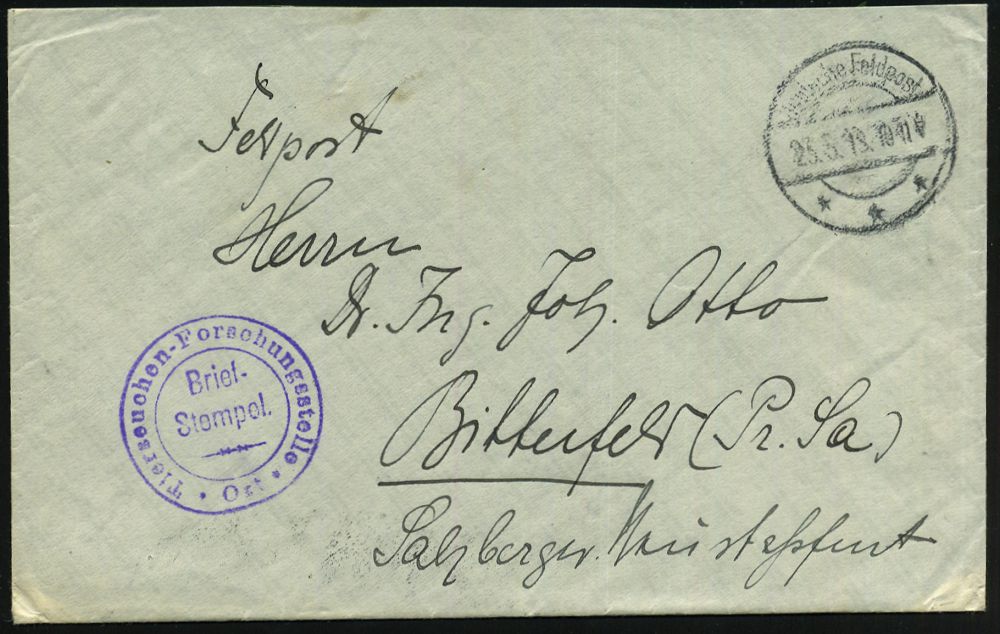 Feldpost
Herrn
Dr. Ing. Joh. Otto
Bitterfeld (Pr. Sa)
Salzberger
Deutsche Feldpost
10-11 V
Tierseuchen-Forschungsstelle
Brief-
Stempel.